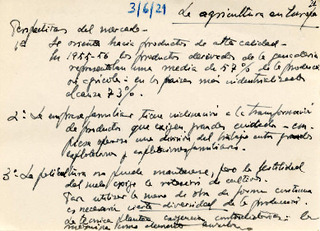 3/6/21
La agricultura en Europa
Perspectivas del mercado -
1º Se orienta hacia productos de alta calidad -
En 1955-56 los productos derivados de la ganadería
representaban una media de 57% de la producción
agrícola; en los países más industrializados
alcanza 73%.
2º: La empresa familiar tiene inclinación a la transformación
de productos que exigen grandes cuidados -
una división del trabajo entre grandes
explotaciones y explotaciones familiares.
3º: La policultura no puede mantenerse, pero la fertilidad
del suelo exige la rotación de cultivos.
Para utilizar la mano de obra de forma continua
es necesaria cierta diversidad de la producción.
La técnica plantea exigencias contradictorias: la